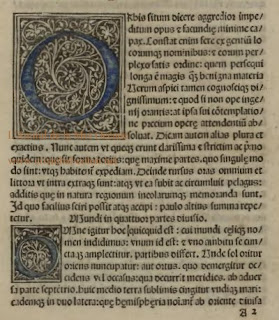 ORbis situm dicere aggredior im
peditum opus & facundie minime ca
pax. Constat enim fere ex gentiū lo
corumqȝ nominibus: & eorum per
plexo satis ordine: quem persequi
longa ē magis qȝ benigna materia
Verum aspici tamen cognosciqȝ di
gnissimum: & quod si non ope inge
nij orantis: at ipsa sui cōtemplatio
ne pacium opere attendentiū ab
soluat. Dicam autem alias plura et
exactius. Nunc autem vt queqȝ erunt clarissima & strictim ac pmo
quidem que sit forma totius: que maxime partes, quo singule mo
do sint: vtqȝ habitēt expediam. Deinde rursus oras omnium et
littora vt intra extraqȝ sunt: atqȝ vt ea subit ac circumluit pelagus:
additis que in natura regionum incolarumqȝ memoranda sunt.
Id quo facilius sciri possit atqȝ accipi: paulo altius summa repe
tetur. Mundi in quattuor partes diuisio.
OMne igitur hoc quicquid est: cui mundi celiqȝ no
men indidimus: vnum id est: & vno ambitu se cun
ctaqȝ amplectitur. partibus differt. Vnde sol oritur
oriens nuncupatur: aut ortus. quo demergitur oc
cidens vel occasus: qua decurrit meridies. ab aduer
sa parte septētrio. huic medio terra sublimis cingitur vndiqȝ mari:
eademqȝ in duo latera: que hemispheria noīant ab oriente diuisa
a 2